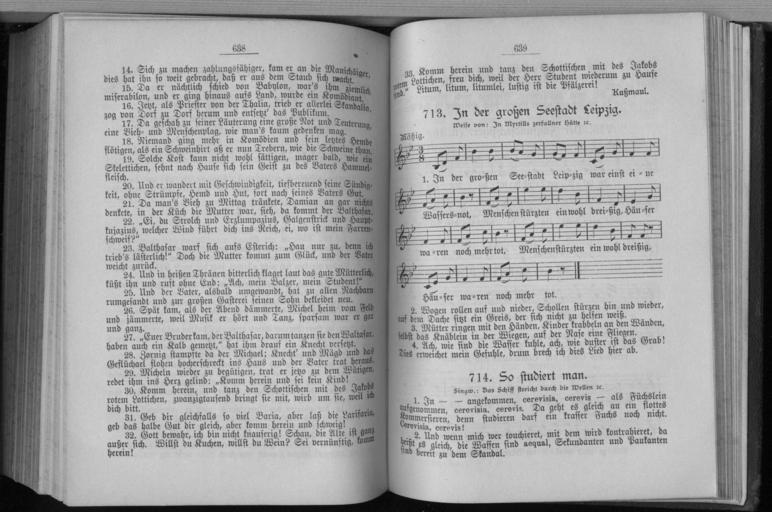 638
14. Sich zu machen zahlungsfähiger, kam er an die Manichäiger,
dies hat ihn so weit gebracht, daß er aus dem Staub sich macht.
15. Da er nächtlich schied von Babylon, war's ihm ziemlich
miserabilon, und er ging hinaus aufs Land, wurde ein Komödiant.
16. Jetzt, als Priester von der Thalia, trieb er allerlei Skandalia,
zog von Dorf zu Dorf herum und entsetzt' das Publikum.
17. Da geschah zu seiner Läuterung eine große Not und Teuterung,
eine Vieh- und Menschenplag, wie man's kaum gedenken mag.
18. Niemand ging mehr in Komödien und sein letztes Hemde
flötigen, als ein Schweinhirt aß er nun Trebern, wie die Schweine thun.
19. Solche Kost kann nicht wohl sättigen, mager bald, wie ein
Skelettichen, sehnt nach Hause sich sein Geist zu des Vaters Hammel-
fleisch.
20. Und er wandert mit Geschwindigkeit, tiefbereuend seine Sündig-
keit, ohne Strümpfe, Hemd und Hut, fort nach seines Vaters Gut.
21. Da man's Vieh zu Mittag tränkete, Damian an gar nichts
denkete, in der Küch die Mutter war, sieh, da kommt der Balthasar.
22. „Ei, du Strolch und Erzlumpazius, Galgenstrick und Haupt-
kujazius, welcher Wind führt dich ins Reich, ei, wo ist mein Farren-
schweif?"
23. Balthasar warf sich aufs Esterich: „Hau nur zu, denn ich
trieb's lästerlich!" Doch die Mutter kommt zum Glück, und der Vater
weicht zurück.
24. Und in heißen Thränen bitterlich klaget laut das gute Mütterlich,
küßt ihn und ruft ohne End: „Ach, mein Balzer, mein Student!"
25. Und der Vater, alsbald umgewandt, hat zu allen Nachbarn
rumgesandt und zur großen Gasterei seinen Sohn bekleidet neu.
26. Spät kam, als der Abend dämmerte, Michel heim vom Feld
und jämmerte, weil Musik er hört und Tanz, sparsam war er gar
und ganz.
27. „Euer Bruder kam, der Balthasar, darum tanzen sie den Waltasar,
haben auch ein Kalb gemetzt," hat ihm drauf ein Knecht versetzt.
28. Zornig stampfte da der Michael; Knecht' und Mägd und das
Geflüchael flohen hocherschreckt ins Haus und der Vater trat heraus.
29. Micheln wieder zu begütigen, trat er jetzo zu dem Wütigen,
redet ihm ins Herz gelind: „Komm herein und sei kein Kind!
30. Komm herein, und tanz den Schottischen mit des Jakobs
rotem Lottichen, zwanzigtausend bringt sie mit, wird um sie, weil ich
dich bitt.
31. Geb dir gleichfalls so viel Baria, aber laß die Larifaria,
geb das halbe Gut dir gleich, aber komm herein und schweig!
32. Gott bewahr, ich bin nicht knauserig! Schau, die Alte ist ganz
außer sich. Willst du Kuchen, willst du Wein? Sei vernünftig, komm
herein!
639
33. Komm herein und tanz den Schottischen mit des Jakobs
rotem Lottichen, freu dich, weil der Herr Student wiederum zu Hause
sind." Litum, litum, litumlei, lustig ist die Pfälzerei!
Kußmaul.
713. In der großen Seestadt Leipzig.
Weise von: In Myrtills zerfallner Hütte ꝛc.
Mäßig.
1. In der gro-ßen See-stadt Leip-zig war einst ei-ne
Wassers-not, Menschen stürzten ein wohl drei-ßig, Häu-ser
wa-ren noch mehr tot, Menschen stürzten ein wohl dreißig,
Häu-ser wa-ren noch mehr tot.
2. Wogen rollen auf und nieder, Schollen stürzen hin und wieder,
auf dem Dache sitzt ein Greis, der sich nicht zu helfen weiß.
3. Mütter ringen mit den Händen, Kinder krabbeln an den Wänden,
selbst das Knäblein in der Wiegen, auf der Nase eine Fliegen.
4. Ach, wie sind die Wasser kuhle, ach, wie duster ist das Grab!
Dies erweichet mein Gefuhle, drum brech ich dies Lied hier ab.
714. So studiert man.
Singw.: Das Schiff streicht durch die Wellen ꝛc.
1. In — — angekommen, cerevisia, cerevis — als Füchslein
aufgenommen, cerevisia, cerevis. Da geht es gleich an ein flottes
Kommersieren, denn studieren darf ein krasser Fuchs noch nicht.
Cerevisia, cerevis!
2. Und wenn mich wer touchieret, mit dem wird kontrahieret, da
heißt es gleich, die Waffen sind aequal, Sekundanten und Paukanten
sind bereit zu dem Skandal.